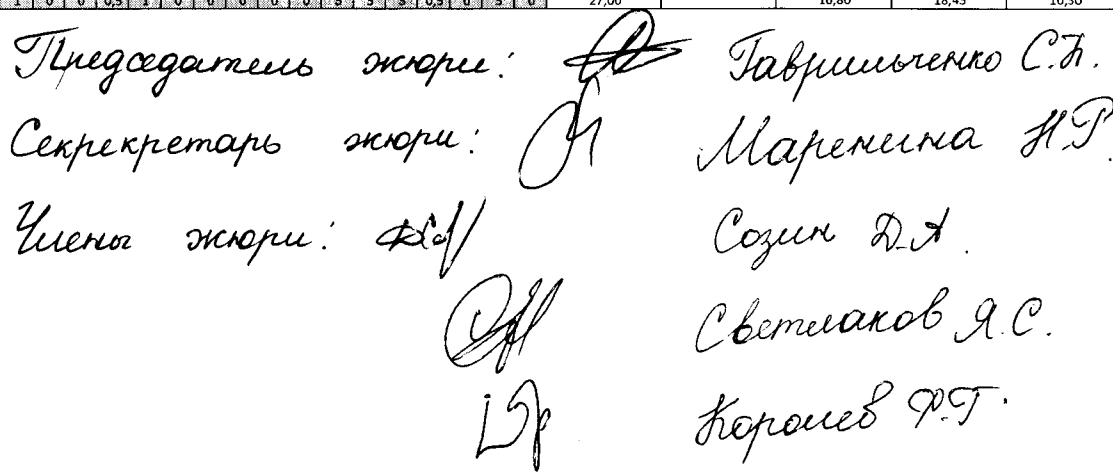 1 0 0 0,5 1 0 0 0 0 0 5 5 5 0,5 0 5 0 27,00 16,80 18,45 10,50
Председатель жюри: Гаврильченко С.П.
Секрекретарь жюри: Маренина Н.Р.
Члены жюри: Созин Д.А.
Светлаков Я.С.
Королев Р.Г.